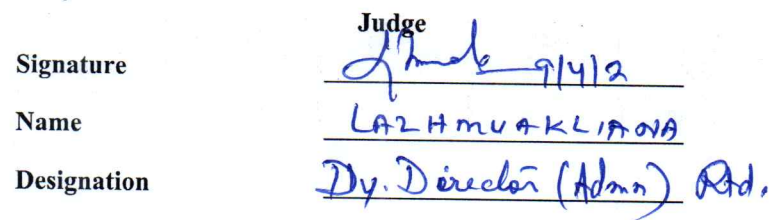 Judge
Signature 9/4/2
Name LALHMUAKLIANA
Designation Dy. Director (Admn) Rtd.